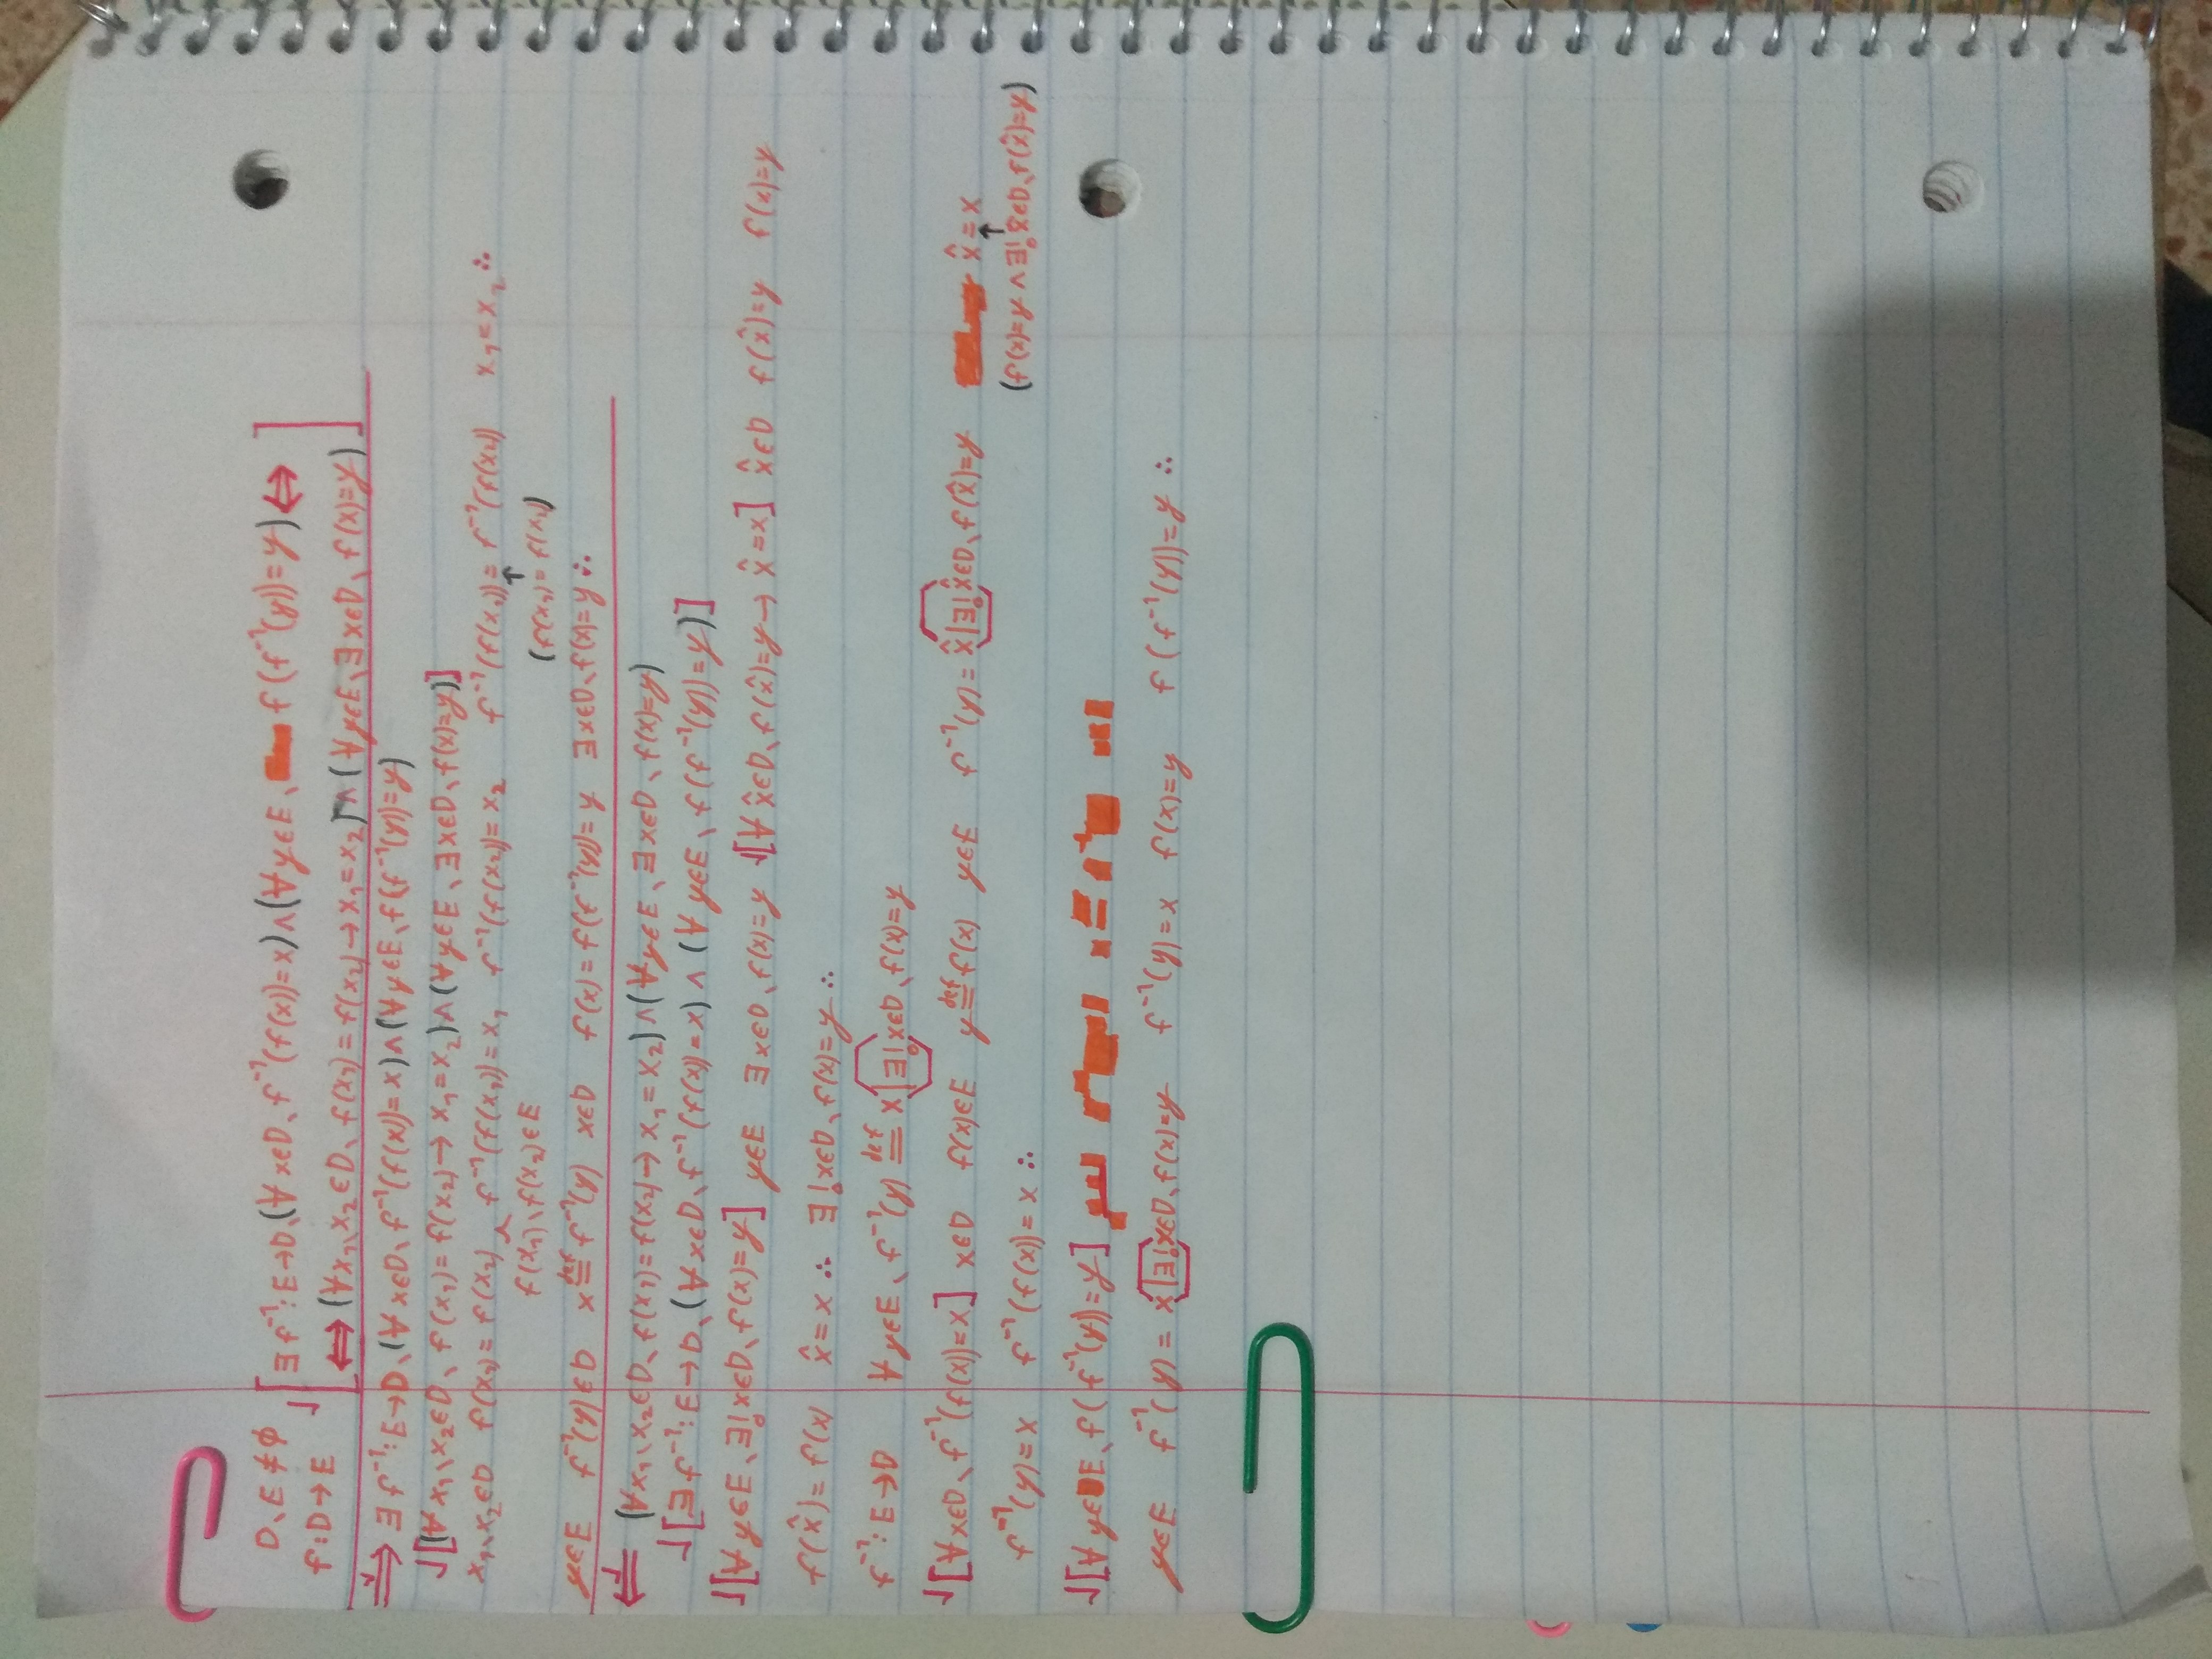 D、E≠ϕ √[∃f⁻¹:E→D、(∀x∈D、f⁻¹(f(x))=x)∧(∀y∈E、f(f⁻¹(y))=y)⇔]
f:D→E [⇔(∀x₁、x₂∈D、f(x₁)=f(x₂)→x₁=x₂)∧(∀y∈E、∃x∈D、f(x)=y)
⇒ ∃f⁻¹:E→D、(∀x∈D、f⁻¹(f(x))=x)∧(∀y∈E、f(f⁻¹(y))=y)
√[(∀x₁、x₂∈D、f(x₁)=f(x₂)→x₁=x₂)∧(∀y∈E、∃x∈D、f(x)=y)]
x₁、x₂∈D f(x₁)=f(x₂) f⁻¹(f(x₁))=x₁ f⁻¹(f(x₂))=x₂ f⁻¹(f(x₁))=f⁻¹(f(x₂)) x₁=x₂∴
f(x₁)、f(x₂)∈E (f(x₁)=f(x₂))
y∈E f⁻¹(y)∈D x≝f⁻¹(y) x∈D f(x)=f(f⁻¹(y))=y ∃x∈D、f(x)=y∴
⇐ (∀x₁、x₂∈D、f(x₁)=f(x₂)→x₁=x₂)∧(∀y∈E、∃x∈D、f(x)=y)
√[∃f⁻¹:E→D、(∀x∈D、f⁻¹(f(x))=x)∧(∀y∈E、f(f⁻¹(y))=y)]
√[∀y∈E、∃¡x∈D、f(x)=y] y∈E ∃x∈D、f(x)=y √[∀x̂∈D、f(x̂)=y→x̂=x] x̂∈D f(x̂)=y f(x)=y
f(x̂)=f(x) x̂=x∴ ∃¡x∈D、f(x)=y∴
f⁻¹:E→D ∀y∈E、f⁻¹(y)≝x|∃¡x∈D、f(x)=y
√[∀x∈D、f⁻¹(f(x))=x] x∈D f(x)∈E y≝f(x) y∈E f⁻¹(y)=x̂|∃¡x̂∈D、f(x̂)=y x̂=x
f⁻¹(y)=x f⁻¹(f(x))=x∴ (f(x)=y∧∃¡x̂∈D、f(x̂)=y)
√[∀y∈E、f(f⁻¹(y))=y]
y∈E f⁻¹(y)=x|∃¡x∈D、f(x)=y f⁻¹(y)=x f(x)=y f(f⁻¹(y))=y∴